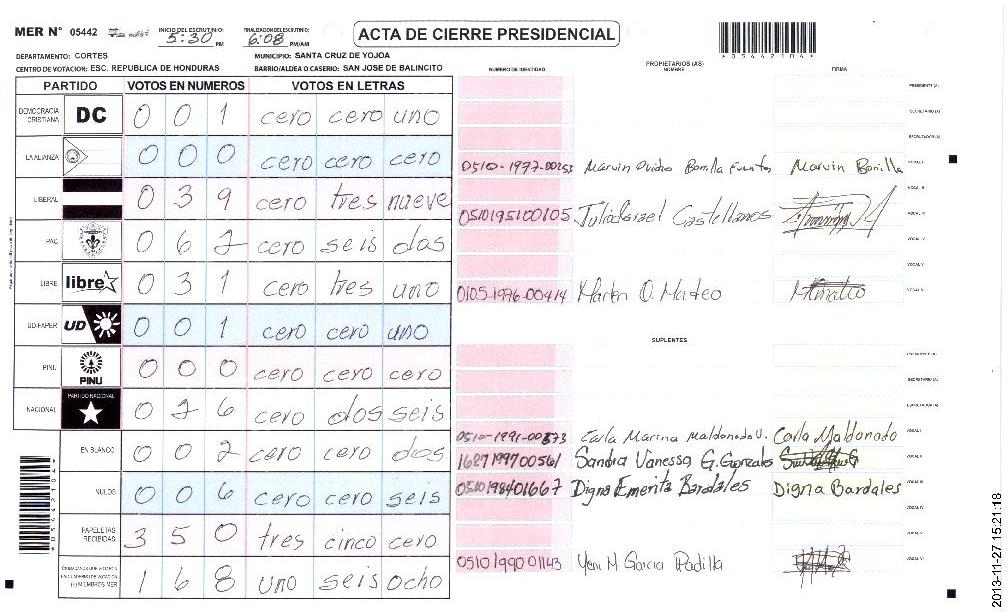 MER N° 05442 INICIO DEL ESCRUTINIO: 5:30 PM FINALIZACION DEL ESCRUTINIO: 6:08 PM/AM ACTA DE CIERRE PRESIDENCIAL
*0544210*
DEPARTAMENTO: CORTES MUNICIPIO: SANTA CRUZ DE YOJOA
CENTRO DE VOTACION: ESC. REPUBLICA DE HONDURAS BARRIO/ALDEA O CASERIO: SAN JOSE DE BALINCITO
PARTIDO VOTOS EN NUMEROS VOTOS EN LETRAS
DEMOCRACIA CRISTIANA DC 0 0 1 cero cero uno
LA ALIANZA 0 0 0 cero cero cero
LIBERAL 0 3 9 cero tres nueve
PAC 0 6 2 cero seis dos
LIBRE libre 0 3 1 cero tres uno
UD-FAPER UD 0 0 1 cero cero uno
PINU PINU 0 0 0 cero cero cero
NACIONAL PARTIDO NACIONAL 0 2 6 cero dos seis
EN BLANCO 0 0 2 cero cero dos
NULOS 0 0 6 cero cero seis
PAPELETAS RECIBIDAS 3 5 0 tres cinco cero
CIUDADANOS QUE VOTARON EN CUADERNO DE VOTACION (+) MIEMBROS MER 1 6 8 uno seis ocho
PROPIETARIOS (AS)
NUMERO DE IDENTIDAD NOMBRE FIRMA
PRESIDENTE (A)
SECRETARIO (A)
ESCRUTADOR (A)
0510-1977-00253 Marvin Ovidio Bonilla Fuentes Marvin Bonilla VOCAL I
VOCAL II
0510195100105 Julio Israel Castellanos VOCAL III
VOCAL IV
VOCAL V
0105-1976-00414 Marlen O. Mateo MMateo
SUPLENTES
PRESIDENTE (A)
SECRETARIO (A)
ESCRUTADOR (A)
0510-1991-00873 Carla Marina Maldonado U. Carla Maldonado VOCAL I
1627199700561 Sandra Vanessa G. Gonzales VOCAL II
0510198401667 Digna Emerita Bardales Digna Bardales VOCAL III
VOCAL IV
VOCAL V
0510199001143 Yeni M. Garcia Padilla VOCAL VI
2013-11-27 15:21:18